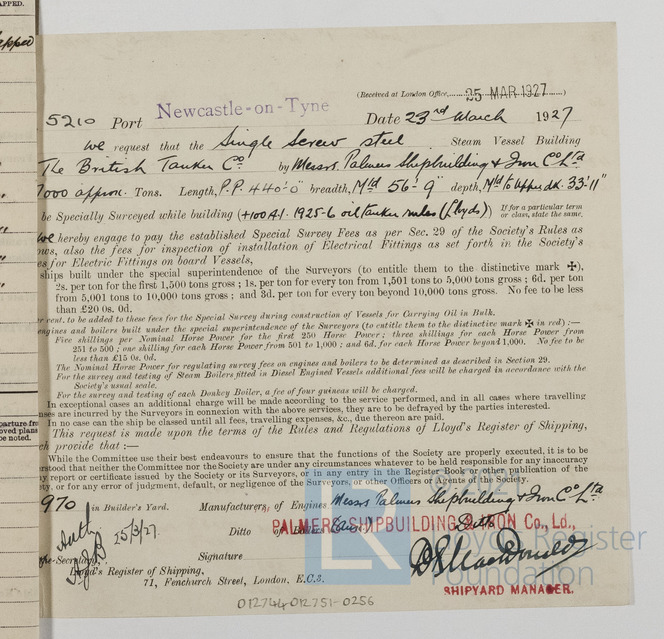 APPED.
(Received at London Office, 25 MAR 1927 )
5210 Port Newcastle-on-Tyne Date 23rd March 1927
We request that the Single Screw steel Steam Vessel Building
The British Tanker Co by Messrs. Palmers Shipbuilding & Iron Co Ltd
7000 approx. Tons. Length, P.P. 440'-0" breadth, Mld 56'-9" depth, Mld to Upper dk. 33'11"
be Specially Surveyed while building (+100A.1. 1925-6 oil tanker rules (Lloyds)) If for a particular term
or class, state the same.
We hereby engage to pay the established Special Survey Fees as per Sec. 29 of the Society's Rules as
ows, also the fees for inspection of installation of Electrical Fittings as set forth in the Society's
es for Electric Fittings on board Vessels,
ships built under the special superintendence of the Surveyors (to entitle them to the distinctive mark ✠),
2s. per ton for the first 1,500 tons gross; 1s. per ton for every ton from 1,501 to 5,000 tons gross; 6d. per ton
from 5,001 tons to 10,000 tons gross; and 3d. per ton for every ton beyond 10,000 tons gross. No fee to be less
than £20 0s. 0d.
er cent. to be added to these fees for the Special Survey during construction of Vessels for Carrying Oil in Bulk.
engines and boilers built under the special superintendence of the Surveyors (to entitle them to the distinctive mark ✠ in red) :—
Five shillings per Nominal Horse Power for the first 250 Horse Power; three shillings for each Horse Power from
251 to 500; one shilling for each Horse Power from 501 to 1,000; and 6d. for each Horse Power beyond 1,000. No fee to be
less than £15 0s. 0d.
The Nominal Horse Power for regulating survey fees on engines and boilers to be determined as described in Section 29.
For the survey and testing of Steam Boilers fitted in Diesel Engined Vessels additional fees will be charged in accordance with the
Society's usual scale.
For the survey and testing of each Donkey Boiler, a fee of four guineas will be charged.
In exceptional cases an additional charge will be made according to the service performed, and in all cases where travelling
nses are incurred by the Surveyors in connexion with the above services, they are to be defrayed by the parties interested.
In no case can the ship be classed until all fees, travelling expenses, &c., due thereon are paid.
This request is made upon the terms of the Rules and Regulations of Lloyd's Register of Shipping,
ch provide that :—
While the Committee use their best endeavours to ensure that the functions of the Society are properly executed, it is to be
rstood that neither the Committee nor the Society are under any circumstances whatever to be held responsible for any inaccuracy
ny report or certificate issued by the Society or its Surveyors, or in any entry in the Register Book or other publication of the
ty, or for any error of judgment, default, or negligence of the Surveyors, or other Officers or Agents of the Society.
parture fro
oved plans
be noted.
970 in Builder's Yard. Manufacturers of Engines Messrs Palmers Shipbuilding & Iron Co Ltd
25/3/27. Ditto of Boilers
PALMERS SHIPBUILDING & IRON Co., Ld.,
Signature D S MacDonald
he Secretary,
Lloyd's Register of Shipping,
71, Fenchurch Street, London, E.C.3.
SHIPYARD MANAGER.
Lloyd's Register
Foundation
012744-012751-0256